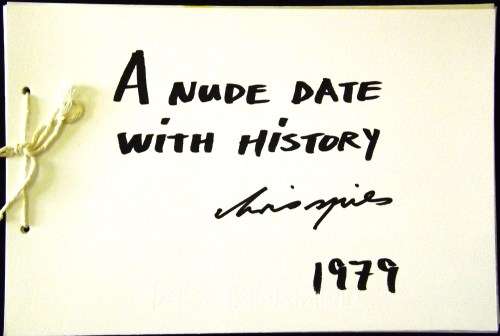 A NUDE DATE
WITH HISTORY
chris spies
1979